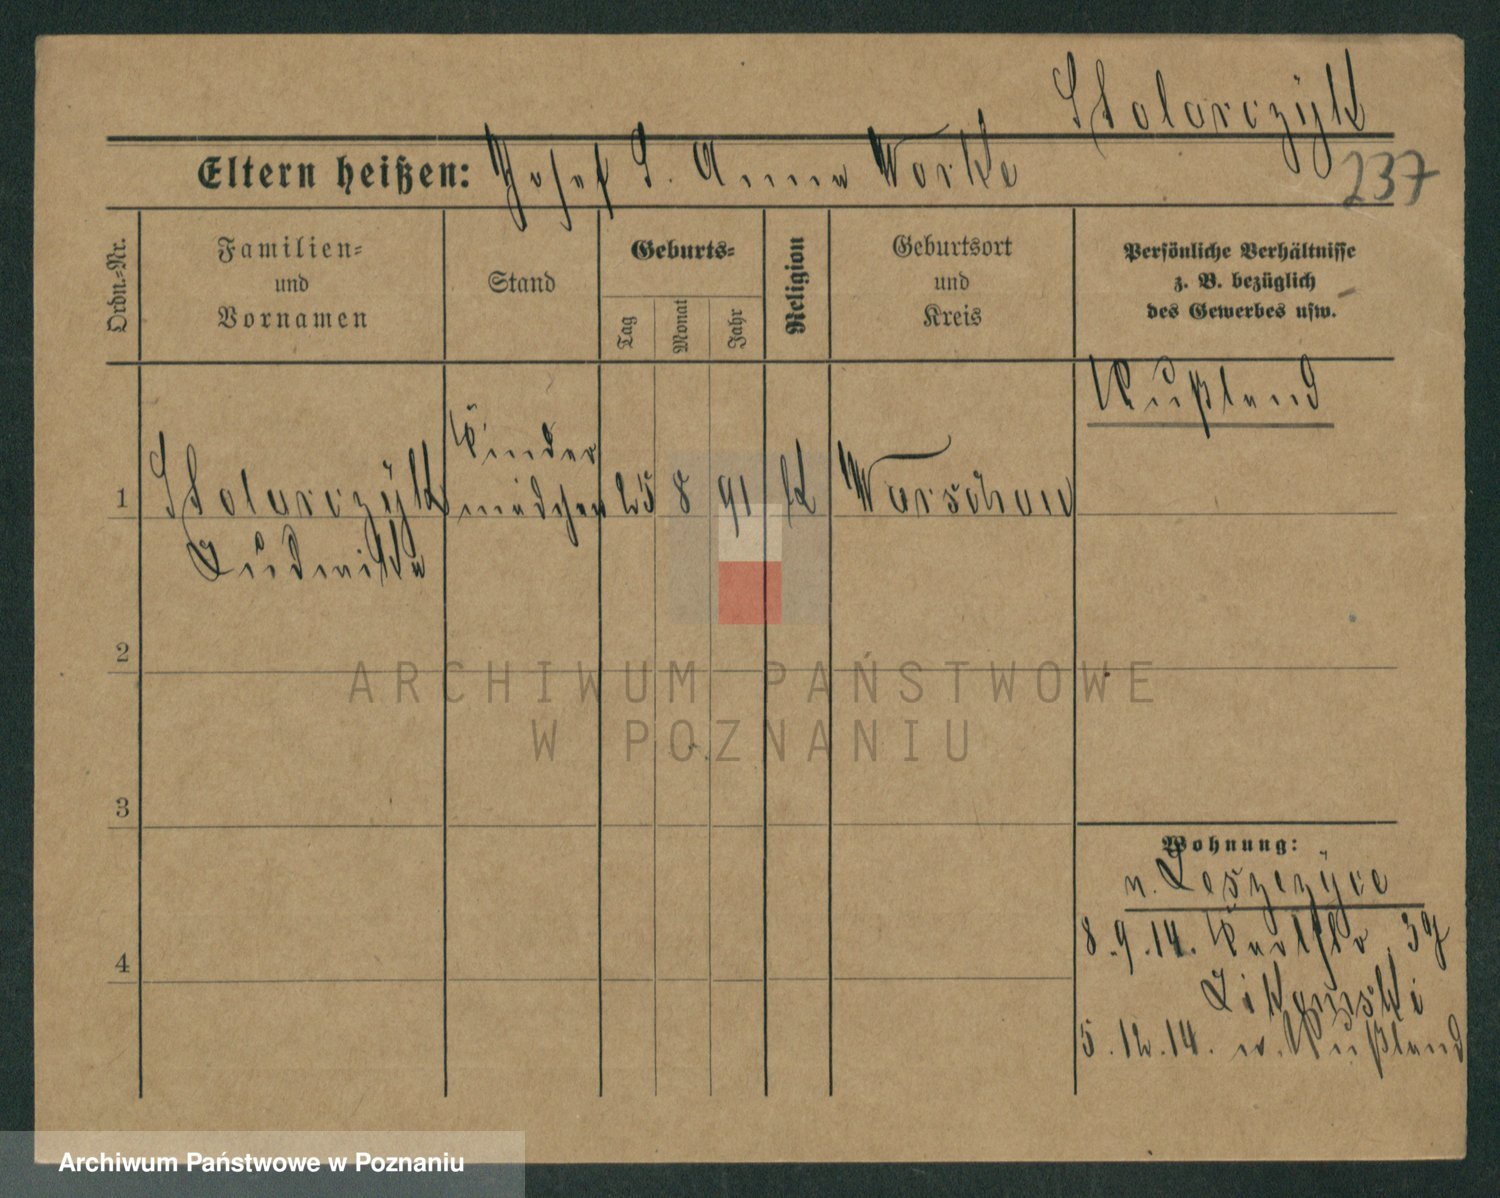 Stolarczÿk
Eltern heißen: Josef S. Anna Worke
237
Ordn.-Nr.
Familien-
und
Vornamen
Stand
Geburts-
Tag
Monat
Jahr
Religion
Geburtsort
und
Kreis
Persönliche Verhältnisse
z. B. bezüglich
des Gewerbes usw.
Rußland
1
Stolarczÿk
Ludwika
Kinder
mädchen
25 8 91 k Warschau
2
3
4
Wohnung:
n. Leszczÿce
8.9.14. 39
Likowski
5.12.14. n. Rußland
ARCHIWUM PAŃSTWOWE
W POZNANIU
Archiwum Państwowe w Poznaniu